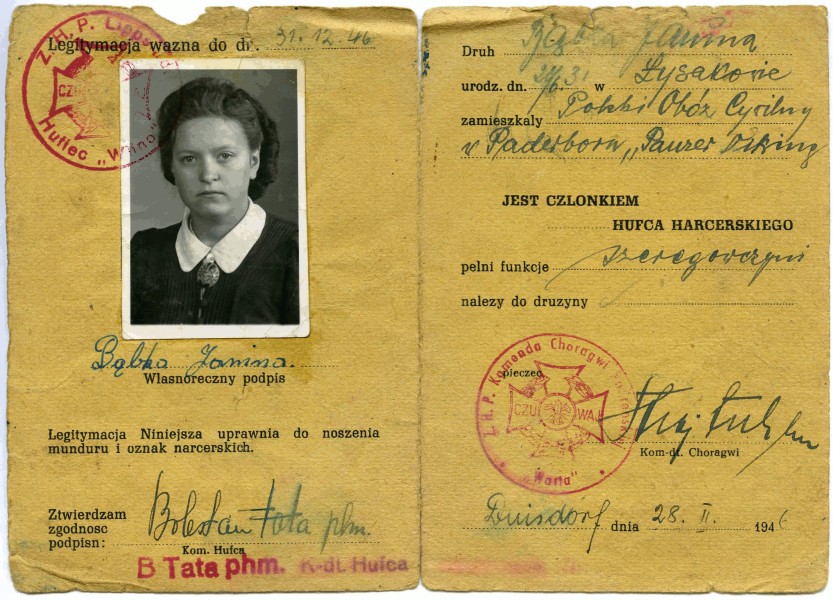 Legitymacja wazna do dn. 31.12.46
Z.H.P. Lipps
CZU
Hufiec "Wilno"
Bąbka Janina.
Własnoręczny podpis
Legitymacja Niniejsza uprawnia do noszenia
munduru i oznak narcerskich.
Ztwierdzam
zgodnosc
podpisn:
Bolesław Tata phm.
Kom. Hufca
B Tata phm. K-dt. Hufca
Druh Bąbka Janina
urodz. dn. 31 w Łysakowie
zamieszkaly Polski Obóz Cywilny
v Paderborn "
JEST CZLONKIEM
HUFCA HARCERSKIEGO
pelni funkcje szeregowczyni
nalezy do druzyny
pieczec
Z.H.P. Komenda Choragwi
CZU WAJ
"Warta"
Kom-dt. Choragwi
Duisdorf dnia 28. II. 1946